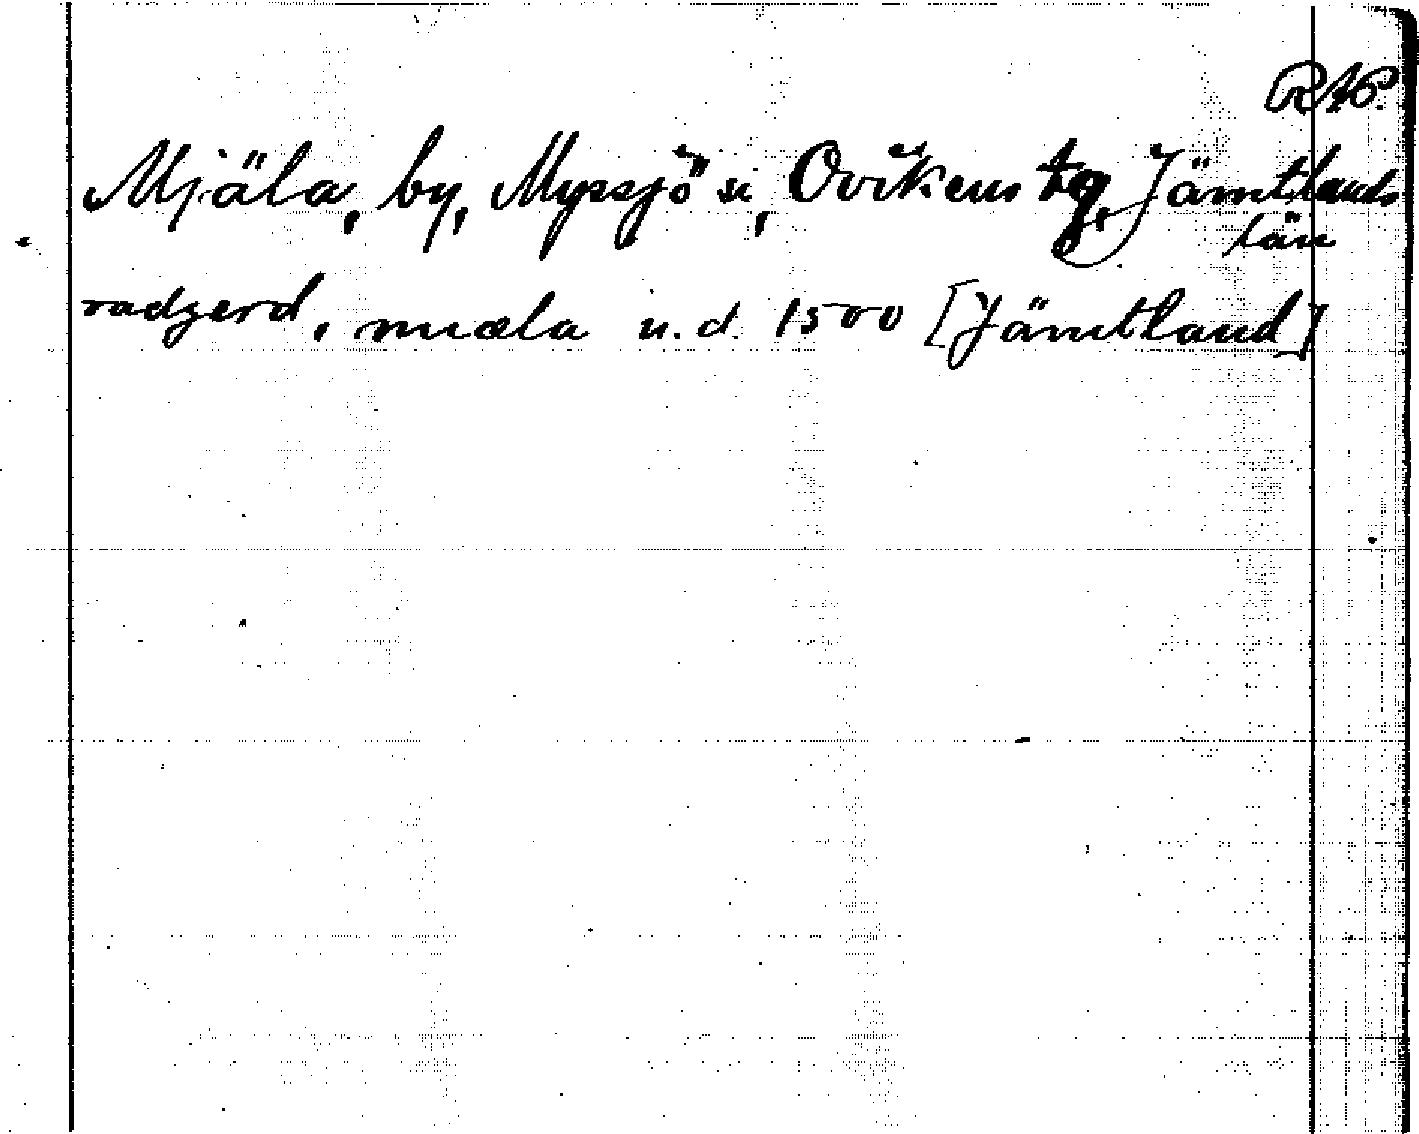 RAP.
Mjäla, by, Myssjö sn, Ovikens tg, Jämtlands
län
radgerd, miæla u.d. 1500 [Jämtland]